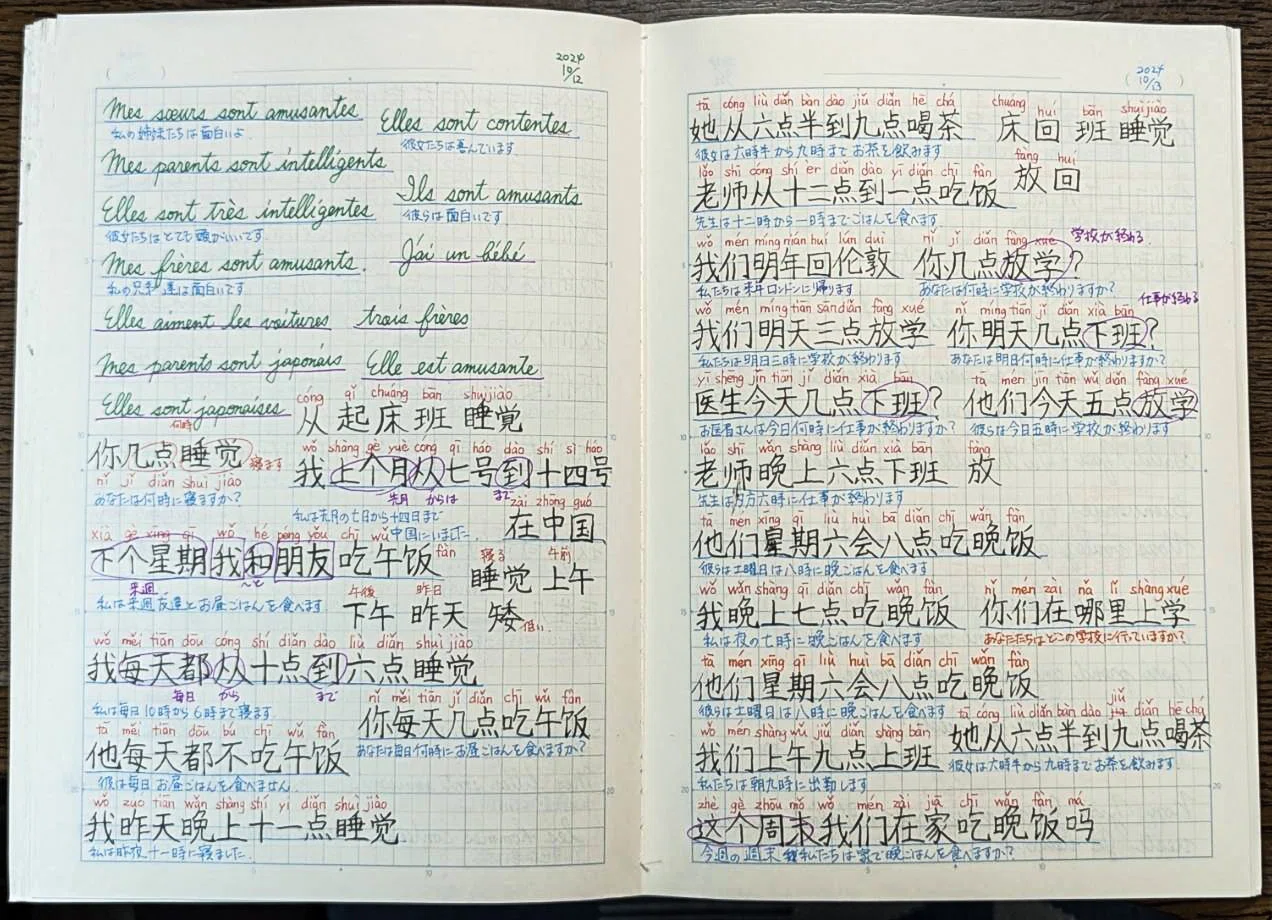 2024
10/12
Mes sœurs sont amusantes
私の姉妹たちは面白いよ
Elles sont contentes
彼女たちは喜んでいます
Mes parents sont intelligents
Elles sont très intelligentes
彼女たちはとても頭がいいです
Ils sont amusants
彼らは面白いです
Mes frères sont amusants.
私の兄弟達は面白いです
J'ai un bébé
Elles aiment les voitures
trois frères
Mes parents sont japonais
Elle est amusante
Elles sont japonaises
cóng qǐ chuáng bān shuìjiào
从 起 床 班 睡觉
何時
你几点睡觉 寝ます
nǐ jǐ diǎn shuì jiào
あなたは何時に寝ますか?
wǒ shàng gè yuè cóng qī háo dào shí sì háo
我上个月从七号到十四号
先月 からは まで
私は先月の七日から十四日まで
中国にいました.
zài zhōng guó
在中国
xià gè xīng qī wǒ hé péng yǒu chī wǔ fàn
下个星期我和朋友吃午饭
来週 〜と
私は来週友達とお昼ごはんを食べます
寝る 午前
睡觉 上午
午後 昨日
下午 昨天 矮 低い
wǒ měi tiān dōu cóng shí diǎn dào liù diǎn shuì jiào
我每天都从十点到六点睡觉
毎日 から まで
私は毎日10時から6時まで寝ます
nǐ měi tiān jǐ diǎn chī wǔ fàn
你每天几点吃午饭
あなたは毎日何時にお昼ごはんを食べますか?
tā měi tiān dōu bú chī wǔ fàn
他每天都不吃午饭
彼は毎日お昼ごはんを食べません
wǒ zuo tiān wǎn shàng shí yi diǎn shuì jiào
我昨天晚上十一点睡觉
私は昨夜十一時に寝ました.
2024
10/13
tā cóng liù diǎn bàn dào jiǔ diǎn hē chá
她从六点半到九点喝茶
彼女は六時半から九時までお茶を飲みます
chuáng huí bān shuìjiào
床 回 班 睡觉
lǎo shī cóng shí èr diǎn dào yī diǎn chī fàn
老师从十二点到一点吃饭
先生は十二時から一時までごはんを食べます
fàng huí
放回
wǒ men míng nián huí lún duì
我们明年回伦敦
私たちは来年ロンドンに帰ります
nǐ jǐ diǎn fàng xué 学校が終わる.
你几点放学?
あなたは何時に学校が終わりますか?
wǒ men míng tiān sān diǎn fàng xué
我们明天三点放学
私たちは明日三時に学校が終わります
仕事が終わる
nǐ míng tiān jǐ diǎn xià bān
你明天几点下班?
あなたは明日何時に仕事が終わりますか?
yī shēng jīn tiān jǐ diǎn xià bān
医生今天几点下班?
お医者さんは今日何時に仕事が終わりますか?
tā mén jīn tiān wǔ diǎn fàng xué
他们今天五点放学
彼らは今日五時に学校が終わります
lǎo shī wǎn shàng liù diǎn xià bān fàng
老师晚上六点下班 放
先生は夕方六時に仕事が終わります
tā men xīng qī liù huì bā diǎn chī wǎn fàn
他们星期六会八点吃晚饭
彼らは土曜日は八時に晩ごはんを食べます
wǒ wǎn shàng qī diǎn chī wǎn fàn
我晚上七点吃晚饭
私は夜の七時に晩ごはんを食べます
nǐ mén zài nǎ lǐ shàng xué
你们在哪里上学
あなたたちはどこの学校に行っていますか?
tā mén xīng qī liù huì bā diǎn chī wǎn fàn
他们星期六会八点吃晚饭
彼らは土曜日は八時に晩ごはんを食べます
wǒ mén shàng wǔ jiǔ diǎn shàng bān
我们上午九点上班
私たちは朝九時に出勤します
tā cóng liù diǎn bàn dào jiǔ diǎn hē chá
她从六点半到九点喝茶
彼女は六時半から九時までお茶を飲みます
zhè gè zhōu mò wǒ mén zài jiā chī wǎn fàn má
这个周末我们在家吃晚饭吗
今週の週末私たちは家で晩ごはんを食べますか?